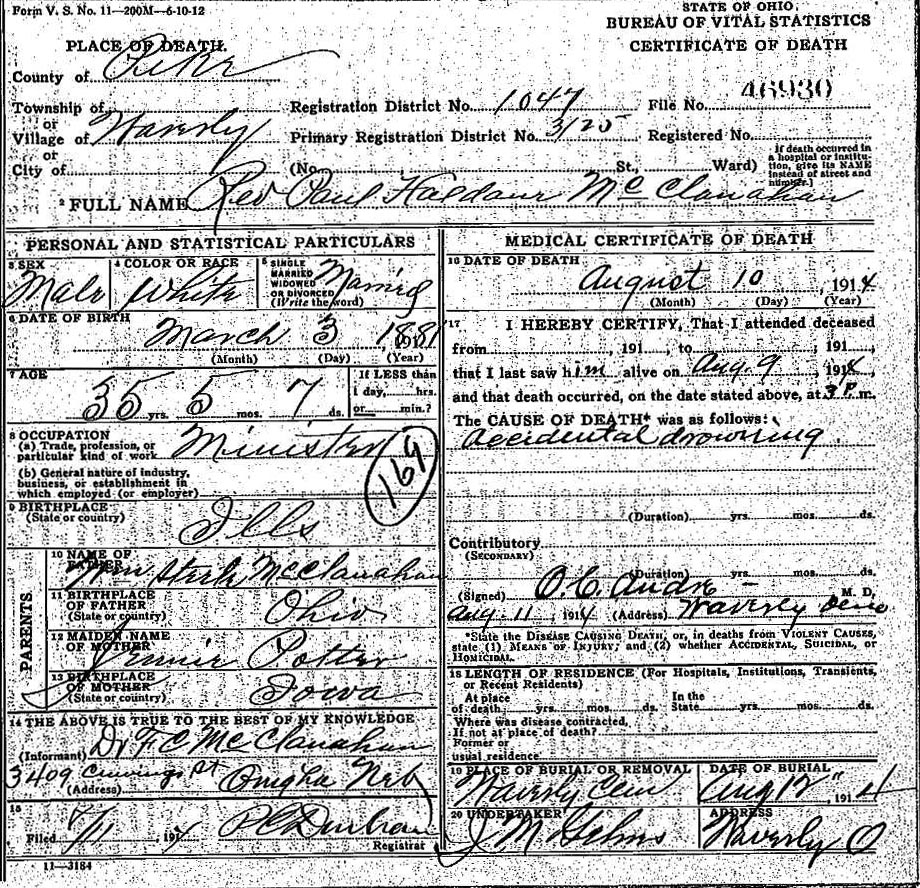 Form V. S. No. 11—200M—6-10-12
STATE OF OHIO.
BUREAU OF VITAL STATISTICS
CERTIFICATE OF DEATH
PLACE OF DEATH.
County of Pike
Township of
or
Village of Waverly
or
City of
Registration District No. 1047
File No. 46930
Primary Registration District No. 3125
Registered No.
(No. St. Ward)
If death occurred in
a hospital or institu-
tion, give its NAME
instead of street and
number.]
2 FULL NAME Rev Paul Haldane McClanahan
PERSONAL AND STATISTICAL PARTICULARS
3 SEX
Male
4 COLOR OR RACE
White
5 SINGLE
MARRIED
WIDOWED
OR DIVORCED
(Write the word)
Married
6 DATE OF BIRTH
March 3
(Month) (Day) (Year)
7 AGE
35 yrs. 5 mos. 7 ds.
If LESS than
1 day, hrs.
or min.?
8 OCCUPATION
(a) Trade, profession, or
particular kind of work Minister
(b) General nature of industry,
business, or establishment in
which employed (or employer)
169
9 BIRTHPLACE
(State or country)
Ills
PARENTS
10 NAME OF
FATHER
Wm McClanahan
11 BIRTHPLACE
OF FATHER
(State or country)
Ohio
12 MAIDEN NAME
OF MOTHER
Jennie Potter
13 BIRTHPLACE
OF MOTHER
(State or country)
Iowa
14 THE ABOVE IS TRUE TO THE BEST OF MY KNOWLEDGE
(Informant) Dr F C McClanahan
3409 St
(Address) Omaha Neb
15
Filed 8/11, 1914
Registrar
11—3184
MEDICAL CERTIFICATE OF DEATH
16 DATE OF DEATH
August 10, 1914
(Month) (Day) (Year)
17 I HEREBY CERTIFY, That I attended deceased
from 191 , to 191 ,
that I last saw him alive on Aug. 9 1914
and that death occurred, on the date stated above, at 3 P. m.
The CAUSE OF DEATH* was as follows:
Accidental drowning
(Duration) yrs. mos. ds.
Contributory
(SECONDARY)
(Duration) yrs. mos. ds.
(Signed) O. C. Andre M. D.
Aug 11, 1914 (Address) Waverly Ohio
*State the DISEASE CAUSING DEATH, or, in deaths from VIOLENT CAUSES,
state (1) MEANS OF INJURY; and (2) whether ACCIDENTAL, SUICIDAL, or
HOMICIDAL.
18 LENGTH OF RESIDENCE (For Hospitals, Institutions, Transients,
or Recent Residents)
At place
of death yrs. mos. ds.
In the
State yrs. mos. ds.
Where was disease contracted,
If not at place of death?
Former or
usual residence
19 PLACE OF BURIAL OR REMOVAL
Waverly Cem
DATE OF BURIAL
Aug 12", 1914
20 UNDERTAKER
J M Gehres
ADDRESS
Waverly O